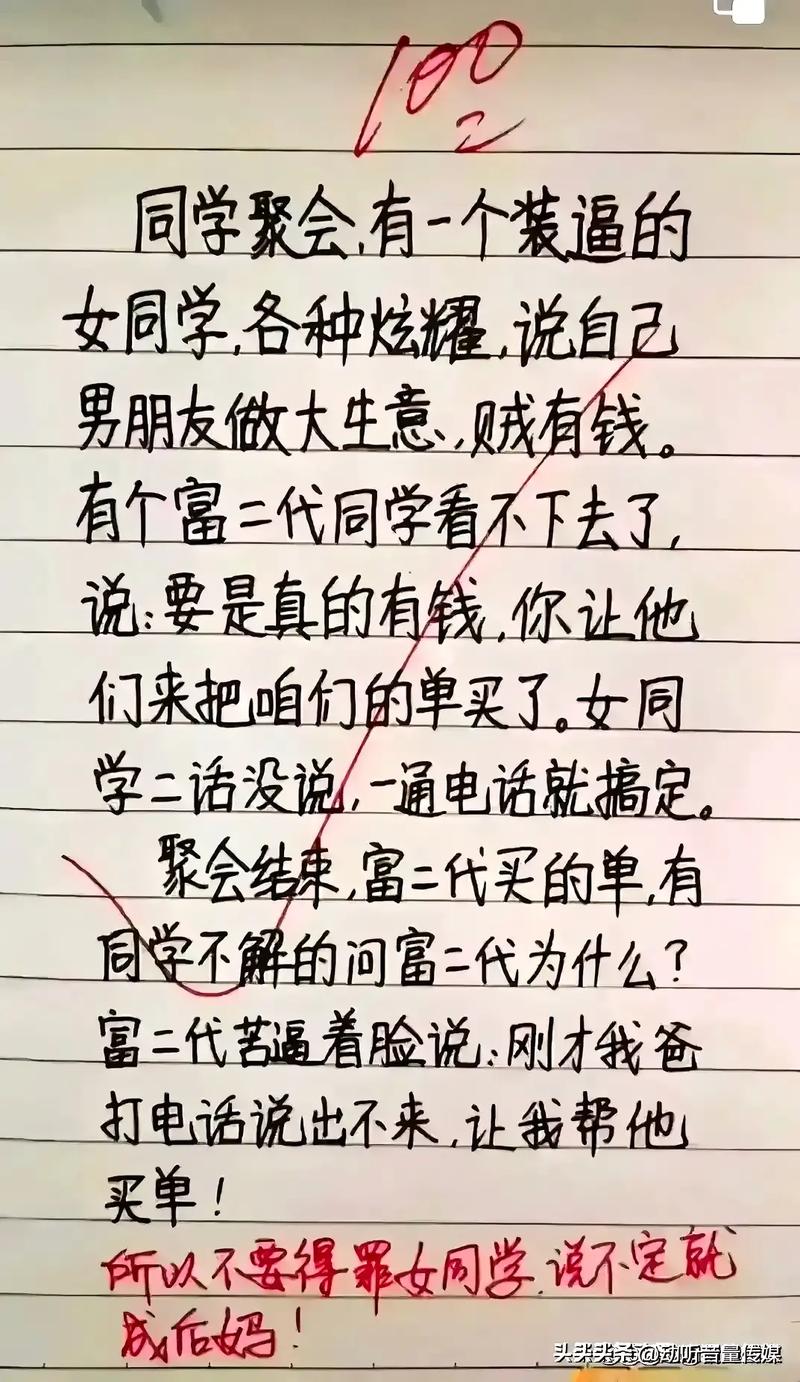 100
同学聚会,有一个装逼的
女同学,各种炫耀,说自己
男朋友做大生意,贼有钱。
有个富二代同学看不下去了,
说:要是真的有钱,你让他
们来把咱们的单买了。女同
学二话没说,一通电话就搞定。
聚会结束,富二代买的单,有
同学不解的问富二代为什么?
富二代苦逼着脸说:刚才我爸
打电话说出不来,让我帮他
买单!
所以不要得罪女同学,说不定就
成后妈!
头条@动听音量传媒